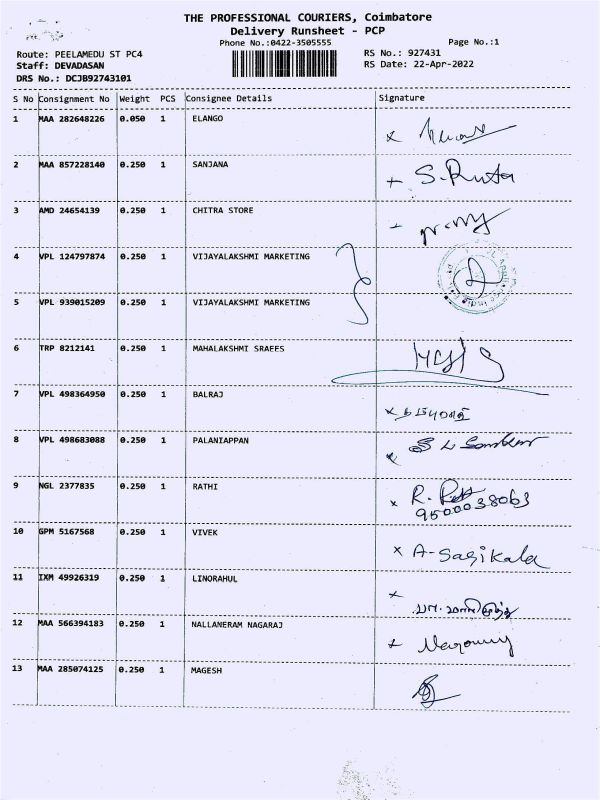 THE PROFESSIONAL COURIERS, Coimbatore
Delivery Runsheet - PCP
Phone No.:0422-3505555 Page No.:1
Route: PEELAMEDU ST PC4 RS No.: 927431
Staff: DEVADASAN RS Date: 22-Apr-2022
DRS No.: DCJB92743101
S No Consignment No Weight PCS Consignee Details Signature
1 MAA 282648226 0.050 1 ELANGO
2 MAA 857228140 0.250 1 SANJANA
3 AMD 24654139 0.250 1 CHITRA STORE
4 VPL 124797874 0.250 1 VIJAYALAKSHMI MARKETING
5 VPL 939015209 0.250 1 VIJAYALAKSHMI MARKETING
6 TRP 8212141 0.250 1 MAHALAKSHMI SRAEES
7 VPL 498364950 0.250 1 BALRAJ
8 VPL 498683088 0.250 1 PALANIAPPAN
9 NGL 2377835 0.250 1 RATHI R.
9500038063
10 GPM 5167568 0.250 1 VIVEK A-Sasikala
11 IXM 49926319 0.250 1 LINORAHUL
12 MAA 566394183 0.250 1 NALLANERAM NAGARAJ
13 MAA 285074125 0.250 1 MAGESH